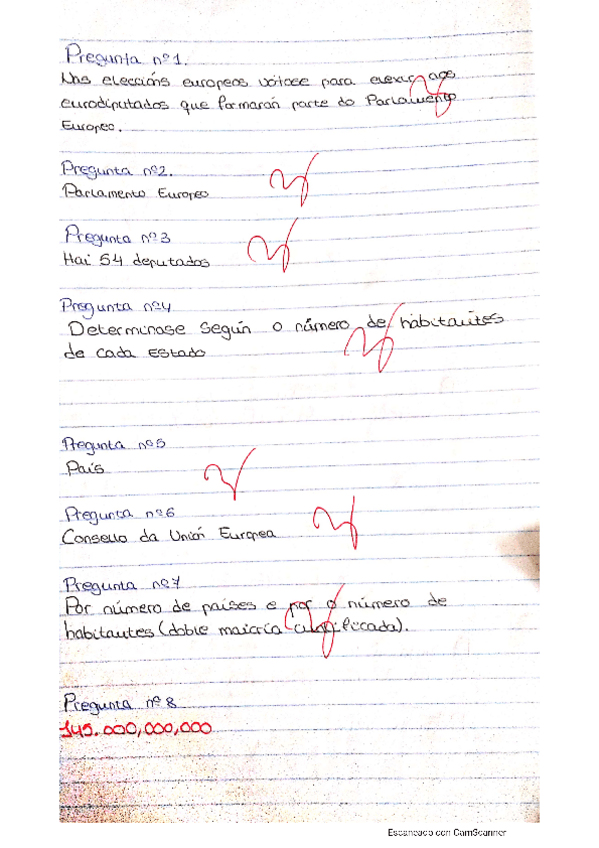 Pregunta nº1.
Nas eleccións europeas vótase para elexir aos
eurodiputados que formarán parte do Parlamento
Europeo.
Pregunta nº2.
Parlamento Europeo
Pregunta nº3
Hai 54 deputados
Pregunta nº4
Determinase Según o número de habitantes
de cada Estado
Pregunta nº5
País
Pregunta nº6
Consello da Unión Europea
Pregunta nº7
Por número de países e por o número de
habitantes (doble maioría cualificada).
Pregunta nº8
145.000,000,000
Escaneado con CamScanner